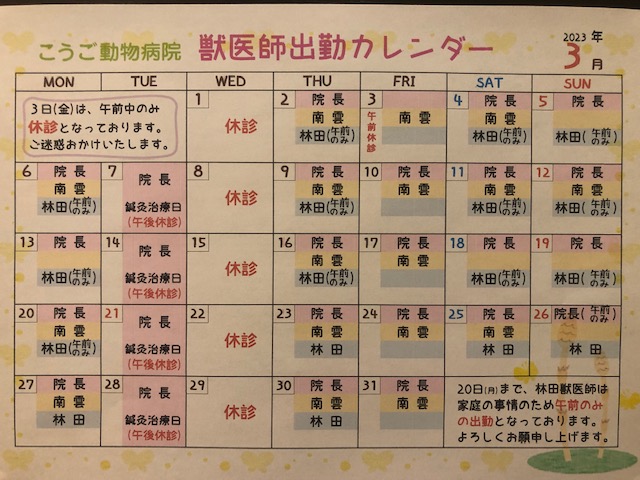 こうご動物病院 獣医師出勤カレンダー 2023年 3月
MON TUE WED THU FRI SAT SUN
3日(金)は、午前中のみ
休診となっております。
ご迷惑おかけいたします。
1 休診
2 院長
南雲
林田(午前のみ)
3 午前休診
南雲
4 院長
南雲
林田(午前のみ)
5 院長
林田(午前のみ)
6 院長
南雲
林田(午前のみ)
7 院長
鍼灸治療日
(午後休診)
8 休診
9 院長
南雲
林田(午前のみ)
10 院長
南雲
11 院長
南雲
林田(午前のみ)
12 院長
南雲
林田(午前のみ)
13 院長
林田(午前のみ)
14 院長
鍼灸治療日
(午後休診)
15 休診
16 院長
南雲
林田(午前のみ)
17 院長
南雲
18 院長
林田(午前のみ)
19 院長
林田(午前のみ)
20 院長
南雲
林田(午前のみ)
21 院長
鍼灸治療日
(午後休診)
22 休診
23 院長
南雲
林田
24 院長
南雲
25 院長
南雲
林田
26 院長(午前のみ)
林田
27 院長
南雲
林田
28 院長
鍼灸治療日
(午後休診)
29 休診
30 院長
南雲
林田
31 院長
南雲
20日(月)まで、林田獣医師は
家庭の事情のため午前のみ
の出勤となっております。
よろしくお願申し上げます。